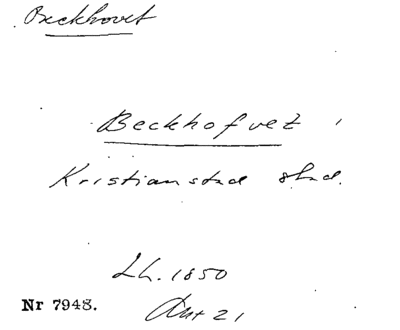 Beckhovet
Beckhofvet
Kristianstad stad.
Lh. 1850
Nr 7948.
21